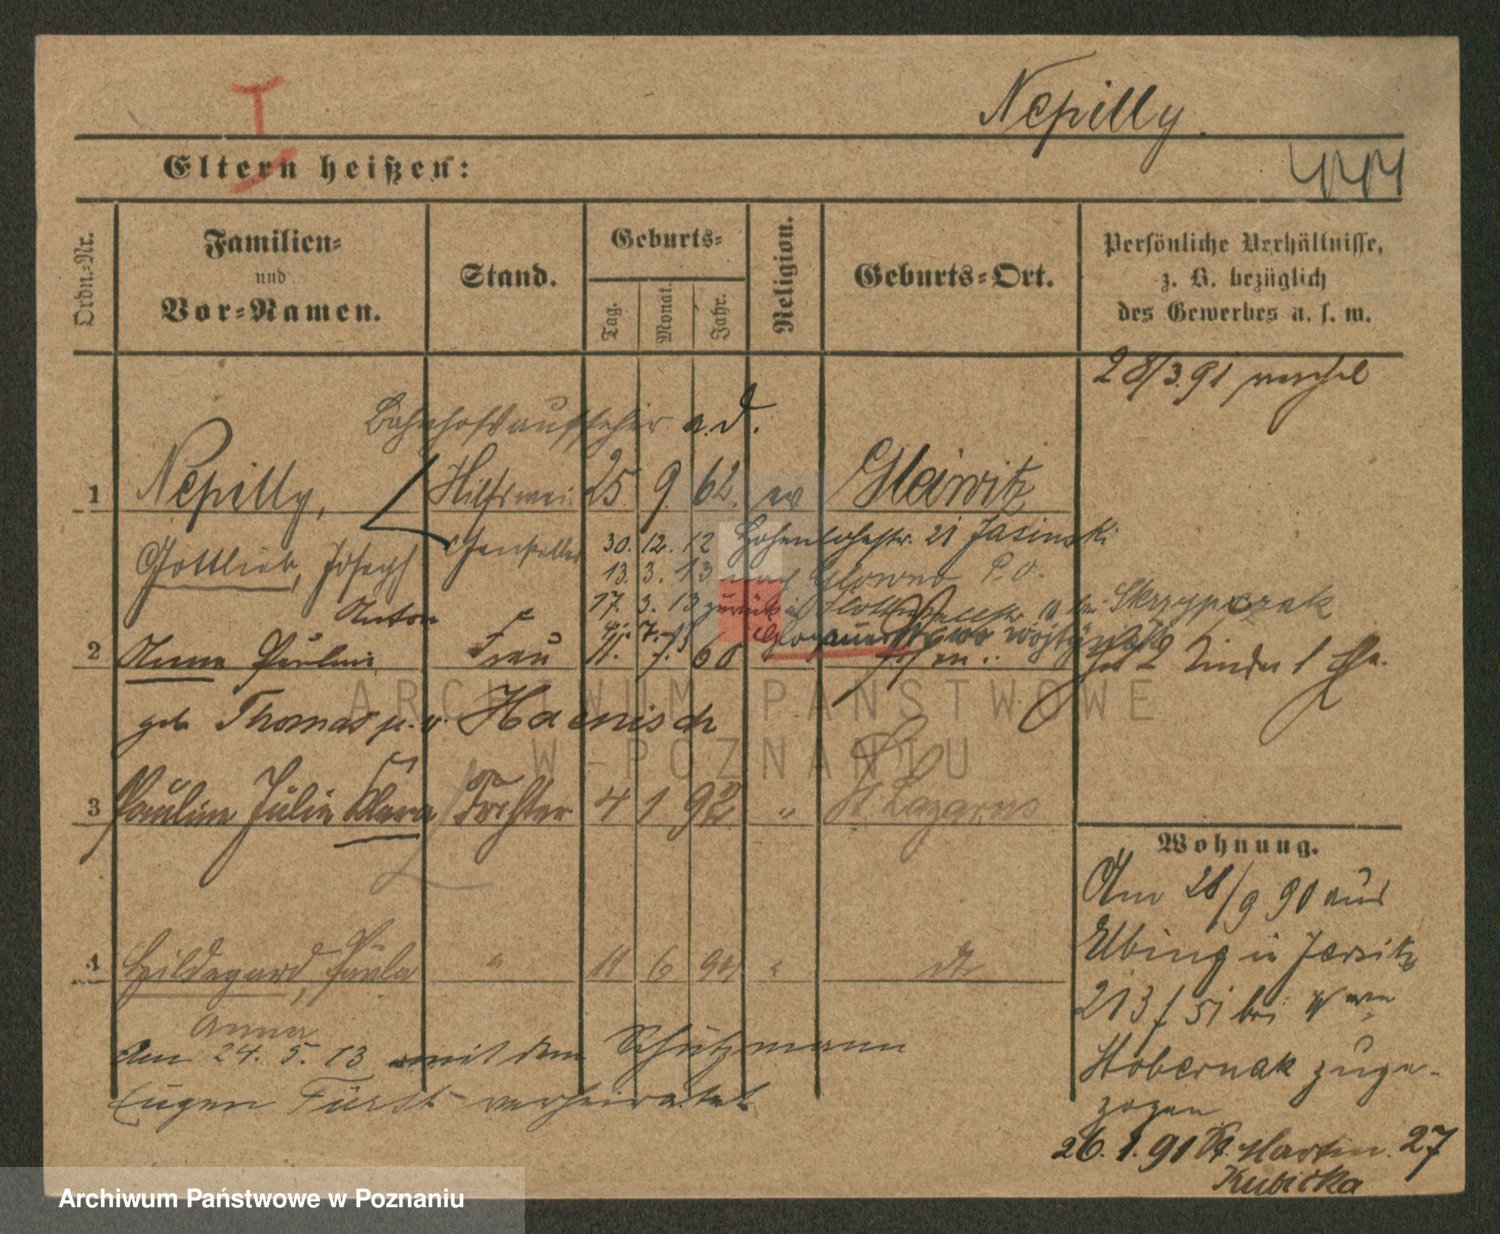 I
Nepilly.
Eltern heißen:
Ordn.-Nr.
Familien-
und
Vor-Namen.
Stand.
Geburts-
Tag.
Monat.
Jahr.
Religion.
Geburts-Ort.
Persönliche Verhältnisse,
z. B. bezüglich
des Gewerbes u. s. w.
28/3.91
Bahnhofsaufseher a.D.
1 Nepilly, Hilfswei. 25 9. 62. ev Gleiwitz
Gottlieb, Joseph chensteller
Anton
30. 12. 12 Hohenlohestr. 21 Jasinski
13. 3. 13 nach Glowno P.O.
17. 3. 13 zurück Skrzypczak
2 Anna Pauline Frau 11. 7. 60 2 Kinder 1
geb Thomas Haenisch
3 Pauline Julie Klara Tochter 4 1 92 " St Lazarus
4 Hildegard, Paula " 11 6 94 " dto
Anna
Am 24. 5. 13 mit dem Schutzmann
Eugen Fürst verheiratet
Wohnung.
Am 28/9 90 aus
Elbing in Jersitz
213/51 bei Wwe
Stobernak zuge-
zogen
26. 1. 91 St. Martin. 27
Kubicka
ARCHIWUM PAŃSTWOWE
W POZNANIU
Archiwum Państwowe w Poznaniu